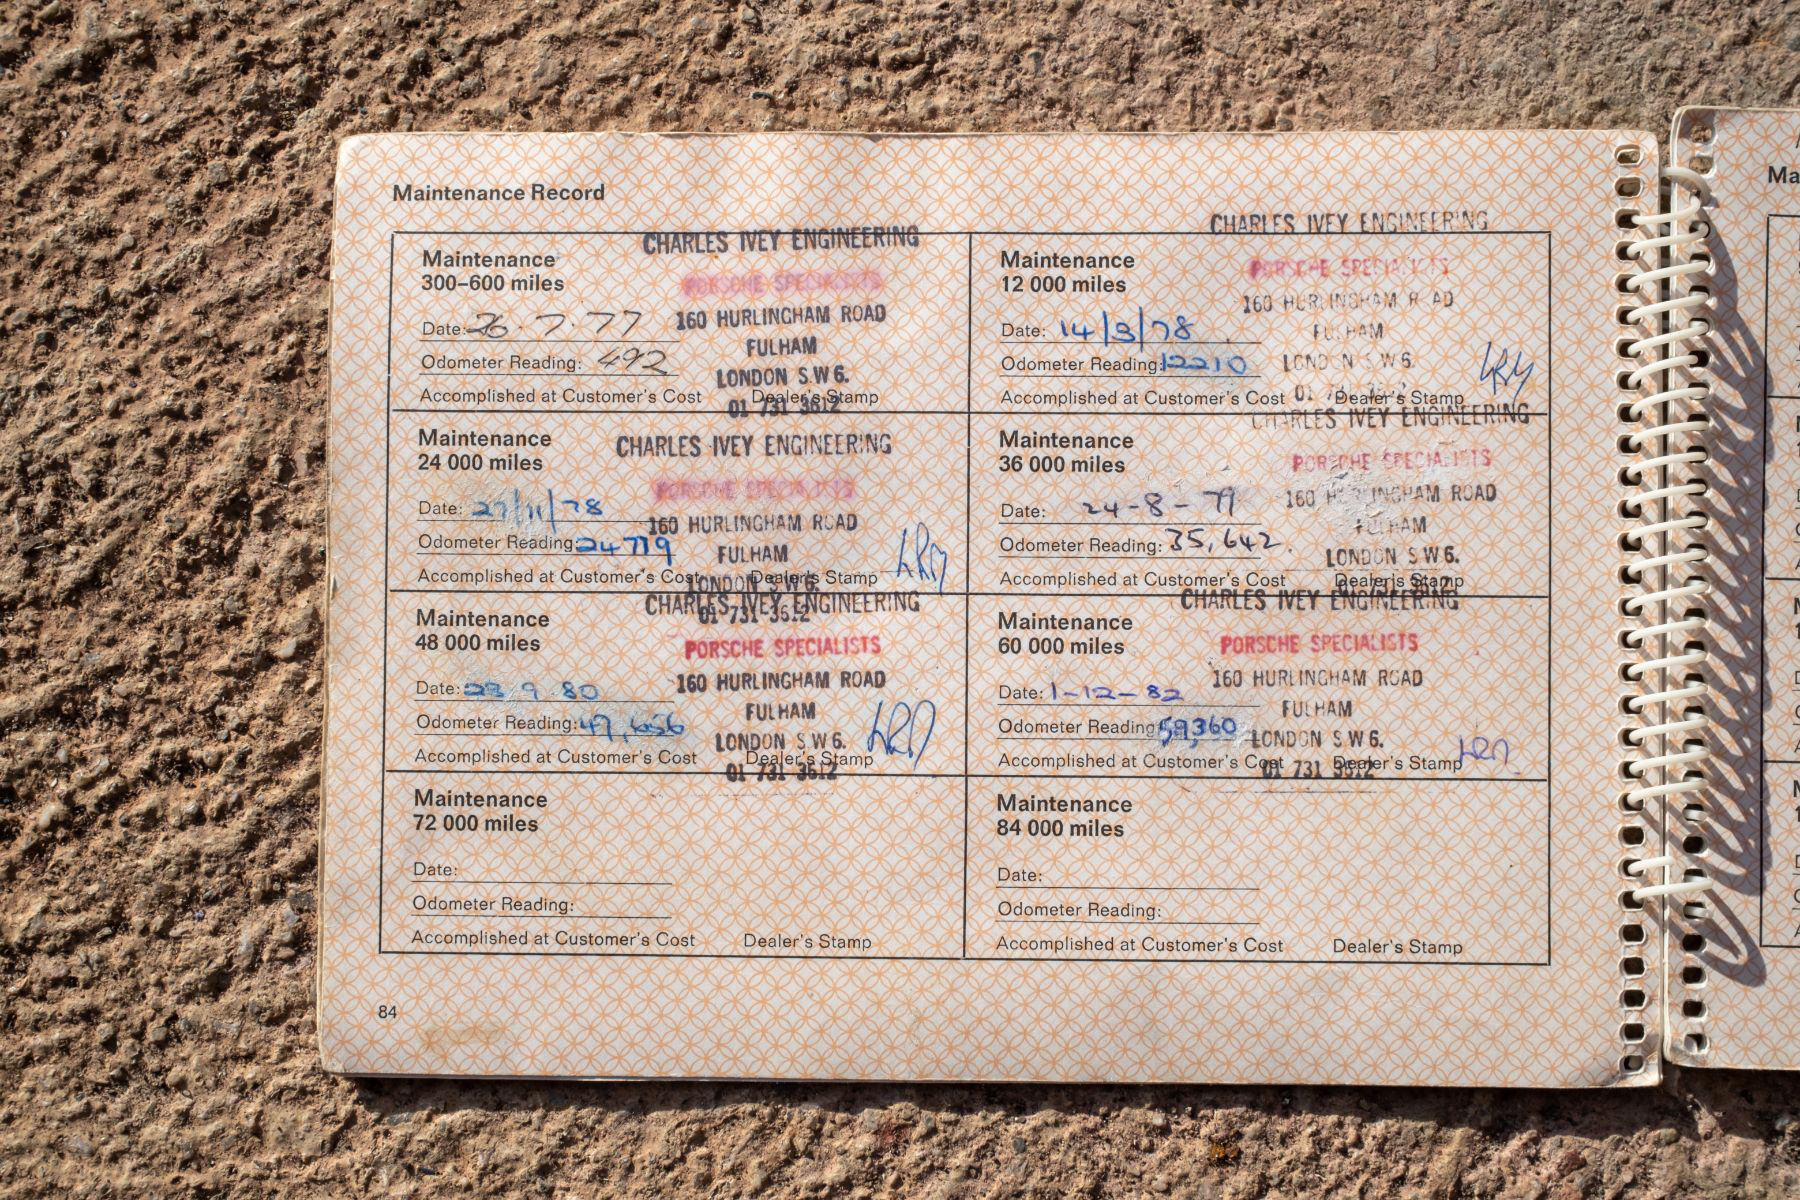 Maintenance Record
CHARLES IVEY ENGINEERING
Maintenance
300–600 miles
PORSCHE SPECIALISTS
160 HURLINGHAM ROAD
Date: 26.7.77
FULHAM
Odometer Reading: 492
LONDON S.W6.
Accomplished at Customer's Cost Dealer's Stamp
01 731 3612
CHARLES IVEY ENGINEERING
Maintenance
12 000 miles
PORSCHE SPECIALISTS
160 HURLINGHAM ROAD
Date: 14/3/78
FULHAM
Odometer Reading: 12210
LONDON S.W6.
Accomplished at Customer's Cost Dealer's Stamp
Maintenance
24 000 miles
CHARLES IVEY ENGINEERING
PORSCHE SPECIALISTS
Date: 27/11/78
160 HURLINGHAM ROAD
Odometer Reading: 24719
FULHAM
Accomplished at Customer's Cost Dealer's Stamp
LONDON S.W6.
01-731-3612
CHARLES IVEY ENGINEERING
Maintenance
36 000 miles
PORSCHE SPECIALISTS
160 HURLINGHAM ROAD
Date: 24-8-79
FULHAM
Odometer Reading: 35,642.
LONDON S.W6.
Accomplished at Customer's Cost Dealer's Stamp
CHARLES IVEY ENGINEERING
Maintenance
48 000 miles
PORSCHE SPECIALISTS
160 HURLINGHAM ROAD
Date: 23 9 80
FULHAM
Odometer Reading: 47,656
LONDON S.W6.
Accomplished at Customer's Cost Dealer's Stamp
01 731 3612
CHARLES IVEY ENGINEERING
Maintenance
60 000 miles
PORSCHE SPECIALISTS
160 HURLINGHAM ROAD
Date: 1-12-82
FULHAM
Odometer Reading: 59,360
LONDON S.W6.
Accomplished at Customer's Cost Dealer's Stamp
01 731 3612
Maintenance
72 000 miles
Date:
Odometer Reading:
Accomplished at Customer's Cost Dealer's Stamp
Maintenance
84 000 miles
Date:
Odometer Reading:
Accomplished at Customer's Cost Dealer's Stamp
84